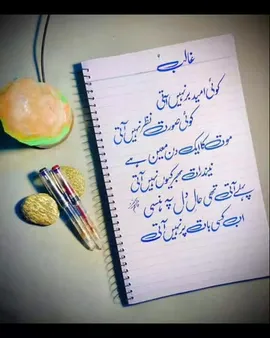 غالب
کوئی امید بر نہیں آتی
کوئی صورت نظر نہیں آتی
موت کا ایک دن معین ہے
نیند رات بھر کیوں نہیں آتی
پہلے آتی تھی حال دل پہ ہنسی
اب کسی بات پر نہیں آتی